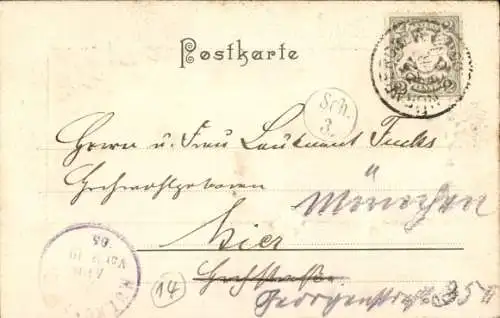 Postkarte
Sch.
3.
Herrn u. Frau Leutnant Fuchs
Hochwohlgeboren
München
Hier
Hochstraße
14
Georgenstraße 35 II